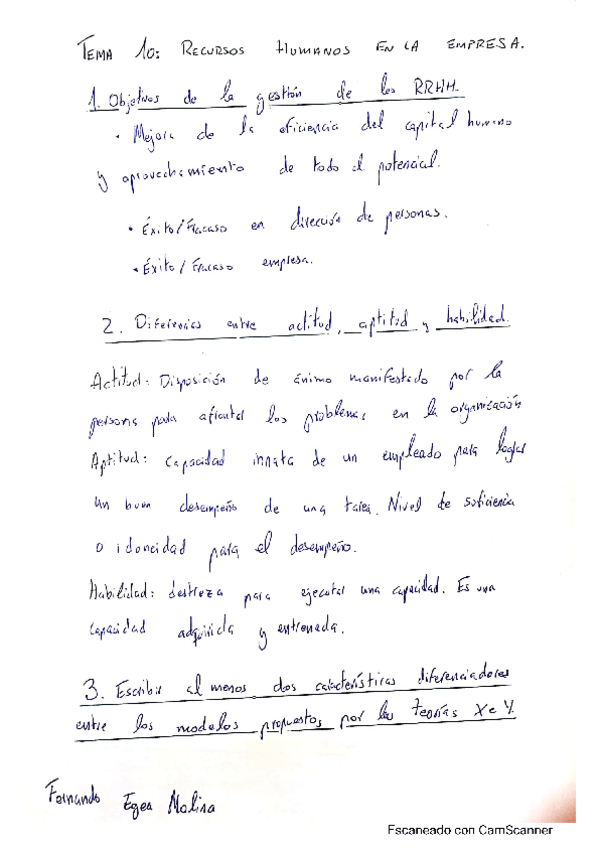 TEMA 10: RECURSOS HUMANOS EN LA EMPRESA.
1. Objetivos de la gestión de los RRHH.
• Mejora de la eficiencia del capital humano
y aprovechamiento de todo el potencial.
• Éxito/Fracaso en dirección de personas.
• Éxito/Fracaso empresa.
2. Diferencias entre actitud, aptitud y habilidad.
Actitud: Disposición de ánimo manifestado por la
persona para afrontar los problemas en la organización
Aptitud: capacidad innata de un empleado para lograr
un buen desempeño de una tarea. Nivel de suficiencia
o idoneidad para el desempeño.
Habilidad: destreza para ejecutar una capacidad. Es una
capacidad adquirida y entrenada.
3. Escribir al menos dos características diferenciadores
entre los modelos propuestos por las teorías X e Y.
Fernando Egea Molina
Escaneado con CamScanner